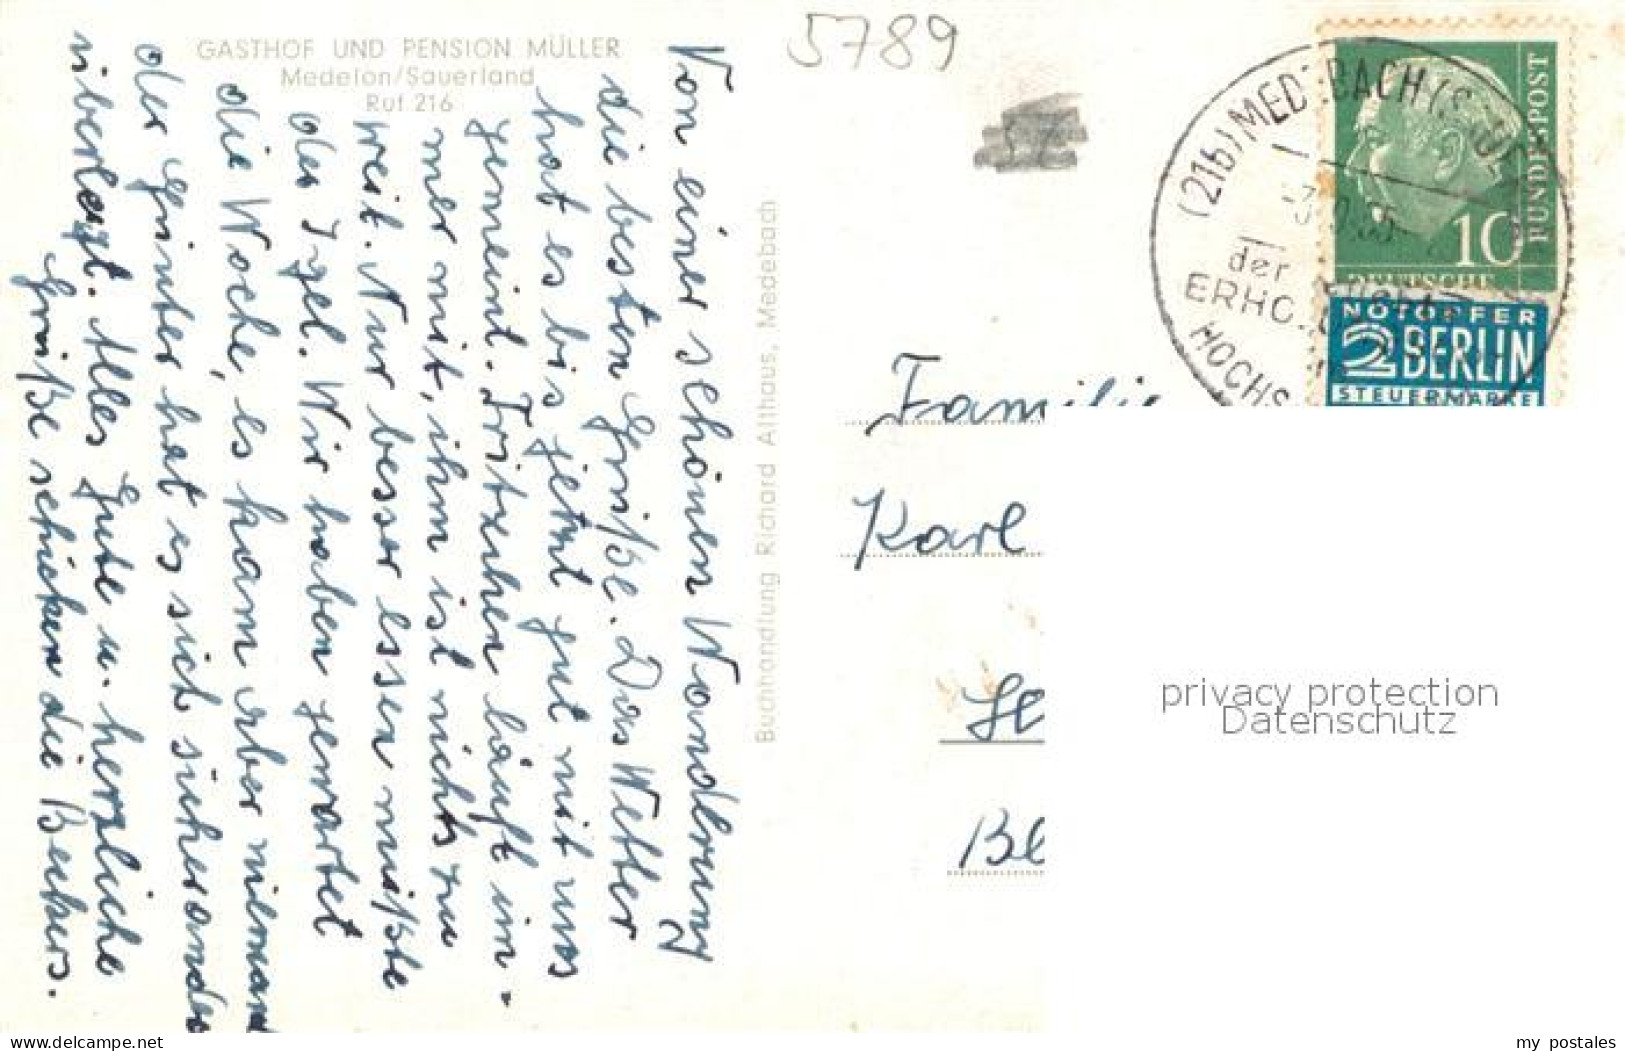 GASTHOF UND PENSION MÜLLER
Medelon/Sauerland
Ruf 216
Von einer schönen Wanderung
die besten Grüße. Das Wetter
hat es bis jetzt gut mit uns
gemeint. Fritzchen läuft im-
mer mit, ihm ist nichts zu
weit. Nur besser essen müßte
der Igel. Wir haben gewartet
die Woche, es kam aber niemand
der Günter hat es sich sicher anders
überlegt. Alles Gute u. herzliche
Grüße schicken die Beckers.
Buchhandlung Richard Althaus, Medebach
5789
(216) MEDEBACH (S
der
ERHO
HOCHS
BUNDESPOST
10
DEUTSCHE
NOTOPFER
2 BERLIN
STEUERMARKE
Familie
Karl
privacy protection
Datenschutz
my postales